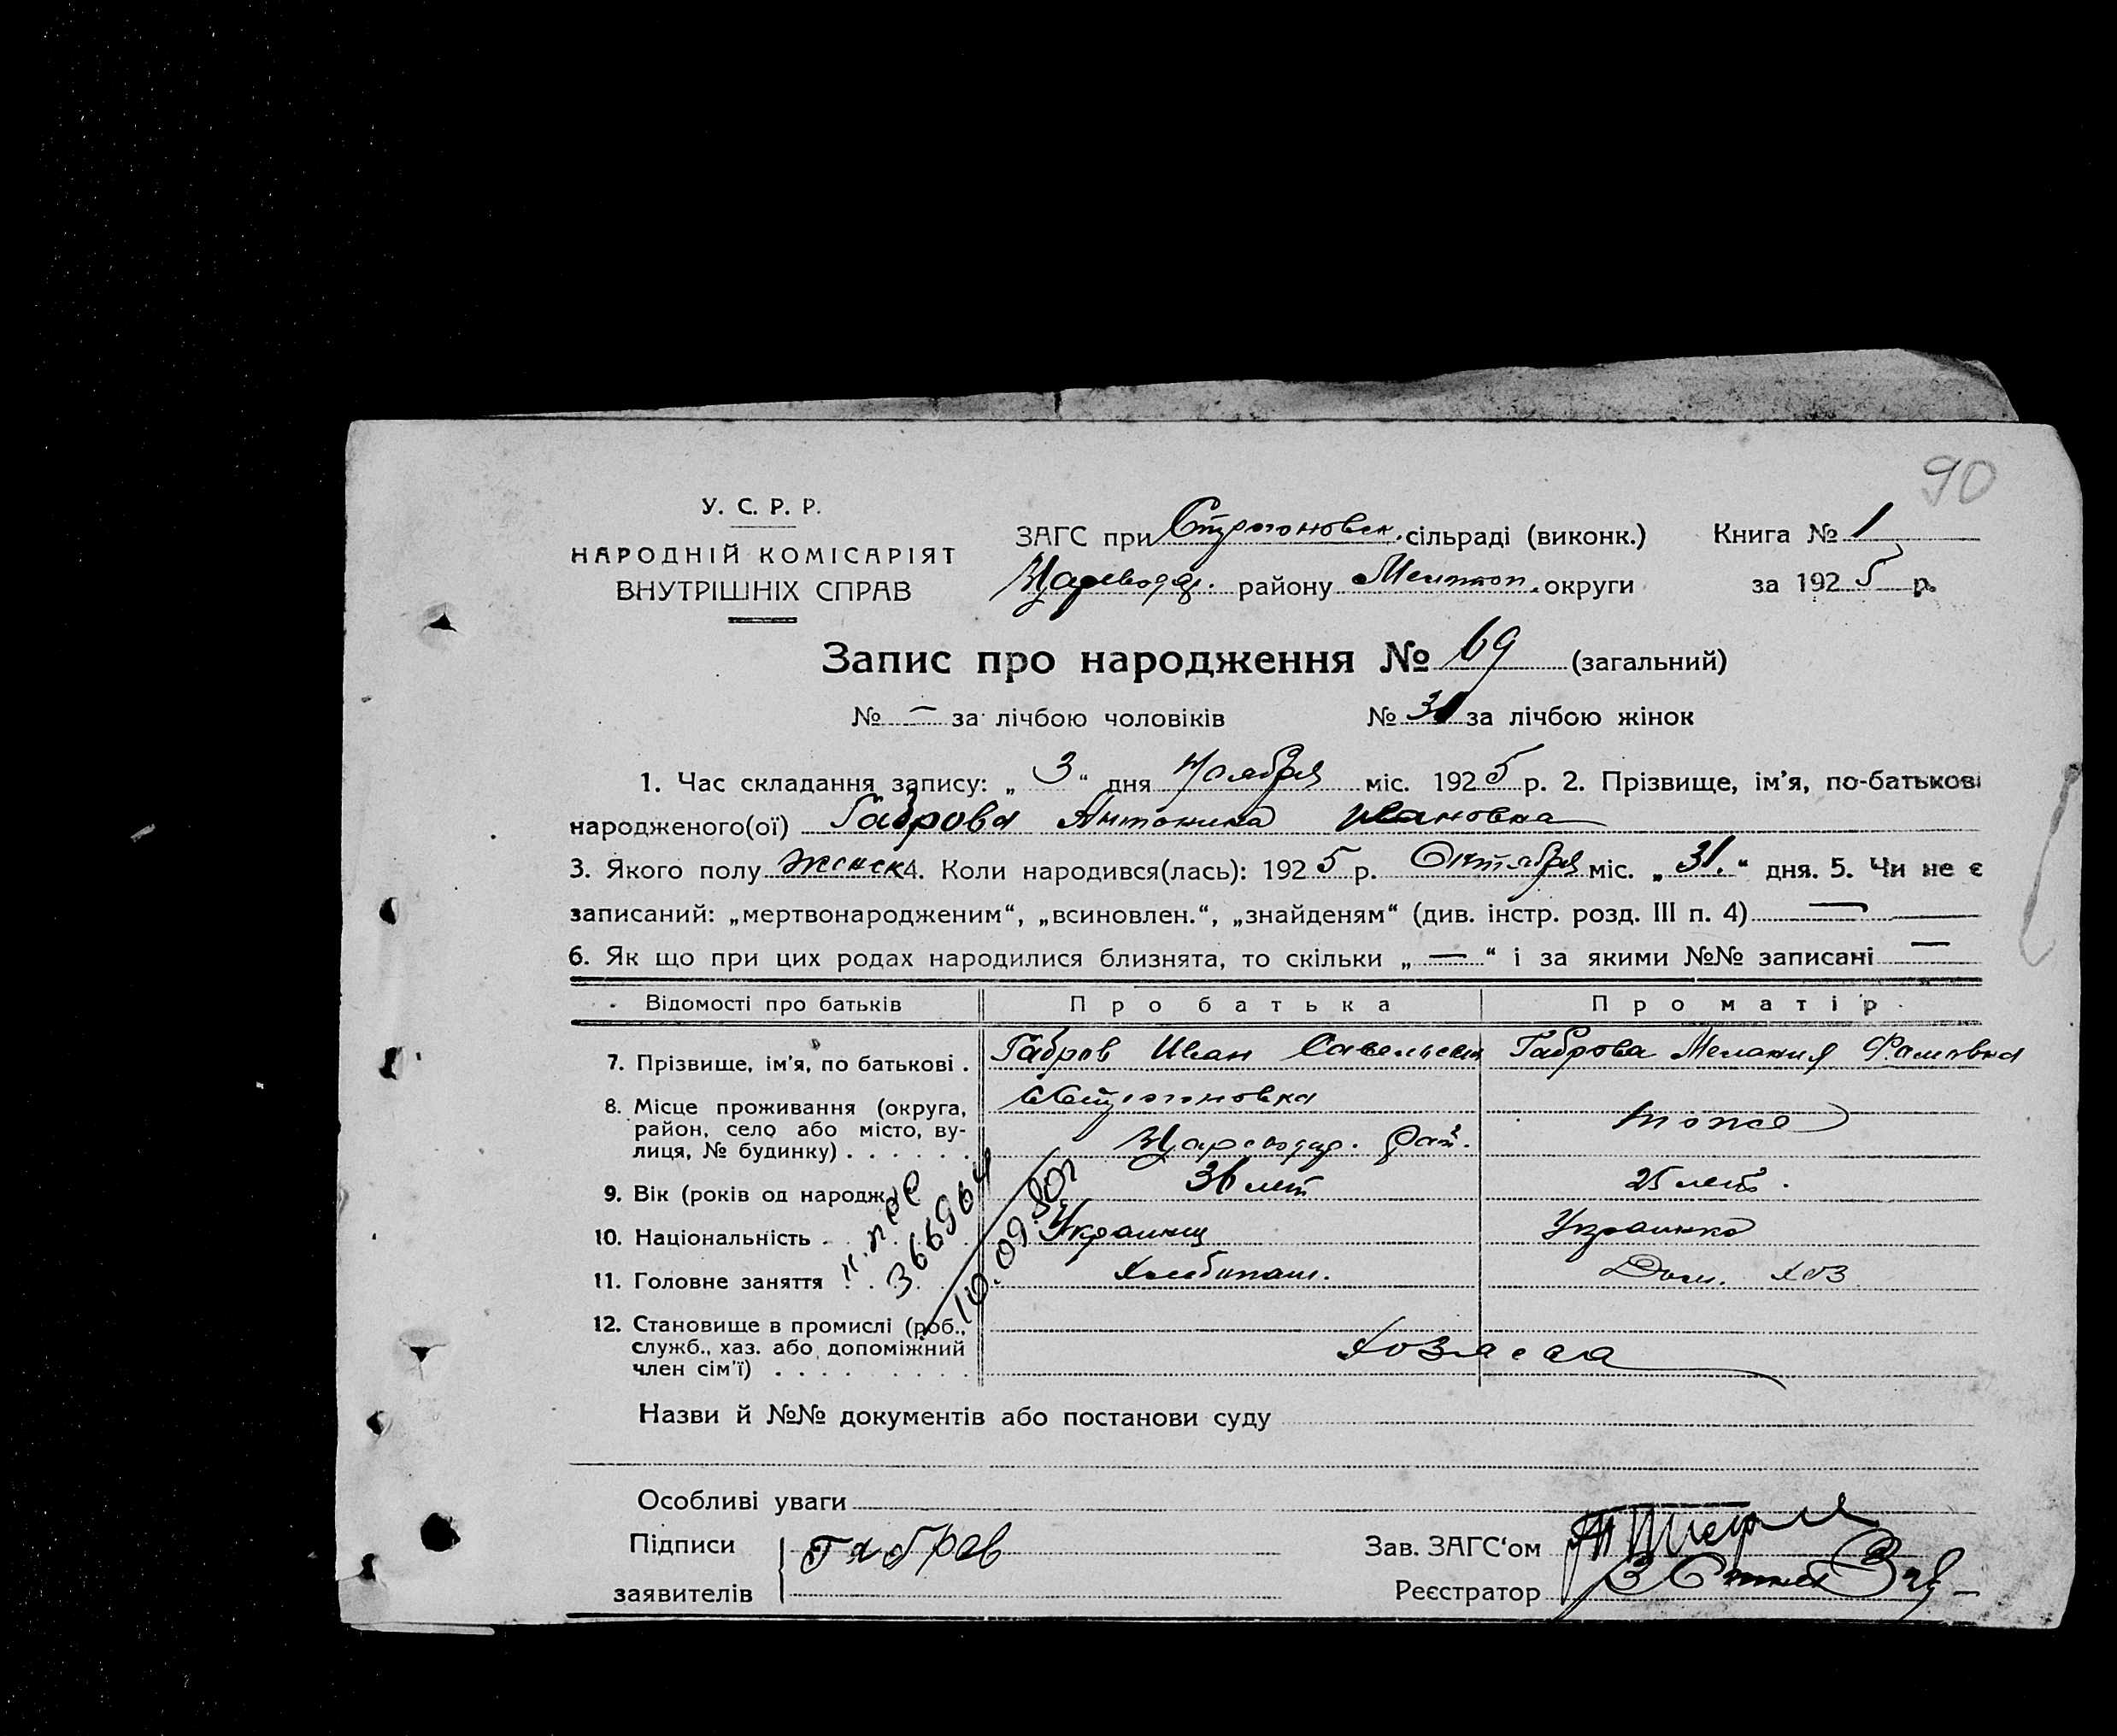 90
У. С. Р. Р.
НАРОДНІЙ КОМІСАРІЯТ
ВНУТРІШНІХ СПРАВ
ЗАГС при Строгоновск. сільраді (виконк.) Книга № 1
Цареводар. району Мелитоп. округи за 1925 р.
Запис про народження № 69 (загальний)
№ — за лічбою чоловіків № 31 за лічбою жінок
1. Час складання запису: „3“ дня Ноября міс. 1925 р. 2. Прізвище, ім’я, по-батькові
народженого(ої) Габрова Антонина Ивановна
3. Якого полу женск 4. Коли народився(лась): 1925 р. Октября міс. „31.“ дня. 5. Чи не є
записаний: „мертвонародженим“, „всиновлен.“, „знайденям“ (див. інстр. розд. III п. 4) —
6. Як що при цих родах народилися близнята, то скільки „—“ і за якими №№ записані —
Відомості про батьків Про батька Про матір
7. Прізвище, ім’я, по батькові . Габров Иван Савельевич Габрова Мелания
8. Місце проживання (округа, район, село або місто, вулиця, № будинку) . . . . . . Строгоновка Цареводар. Рай. тоже
9. Вік (років од народж. 36 лет 25 лет.
10. Національність . Украинец Украинка
11. Головне заняття Хлебопаш. Дом. хоз
12. Становище в промислі (роб., служб., хаз. або допоміжний член сім’ї) . . . . . . . . .
366964
Назви й №№ документів або постанови суду
Особливі уваги
Підписи заявителів Габров
Зав. ЗАГС‘ом
Реєстратор